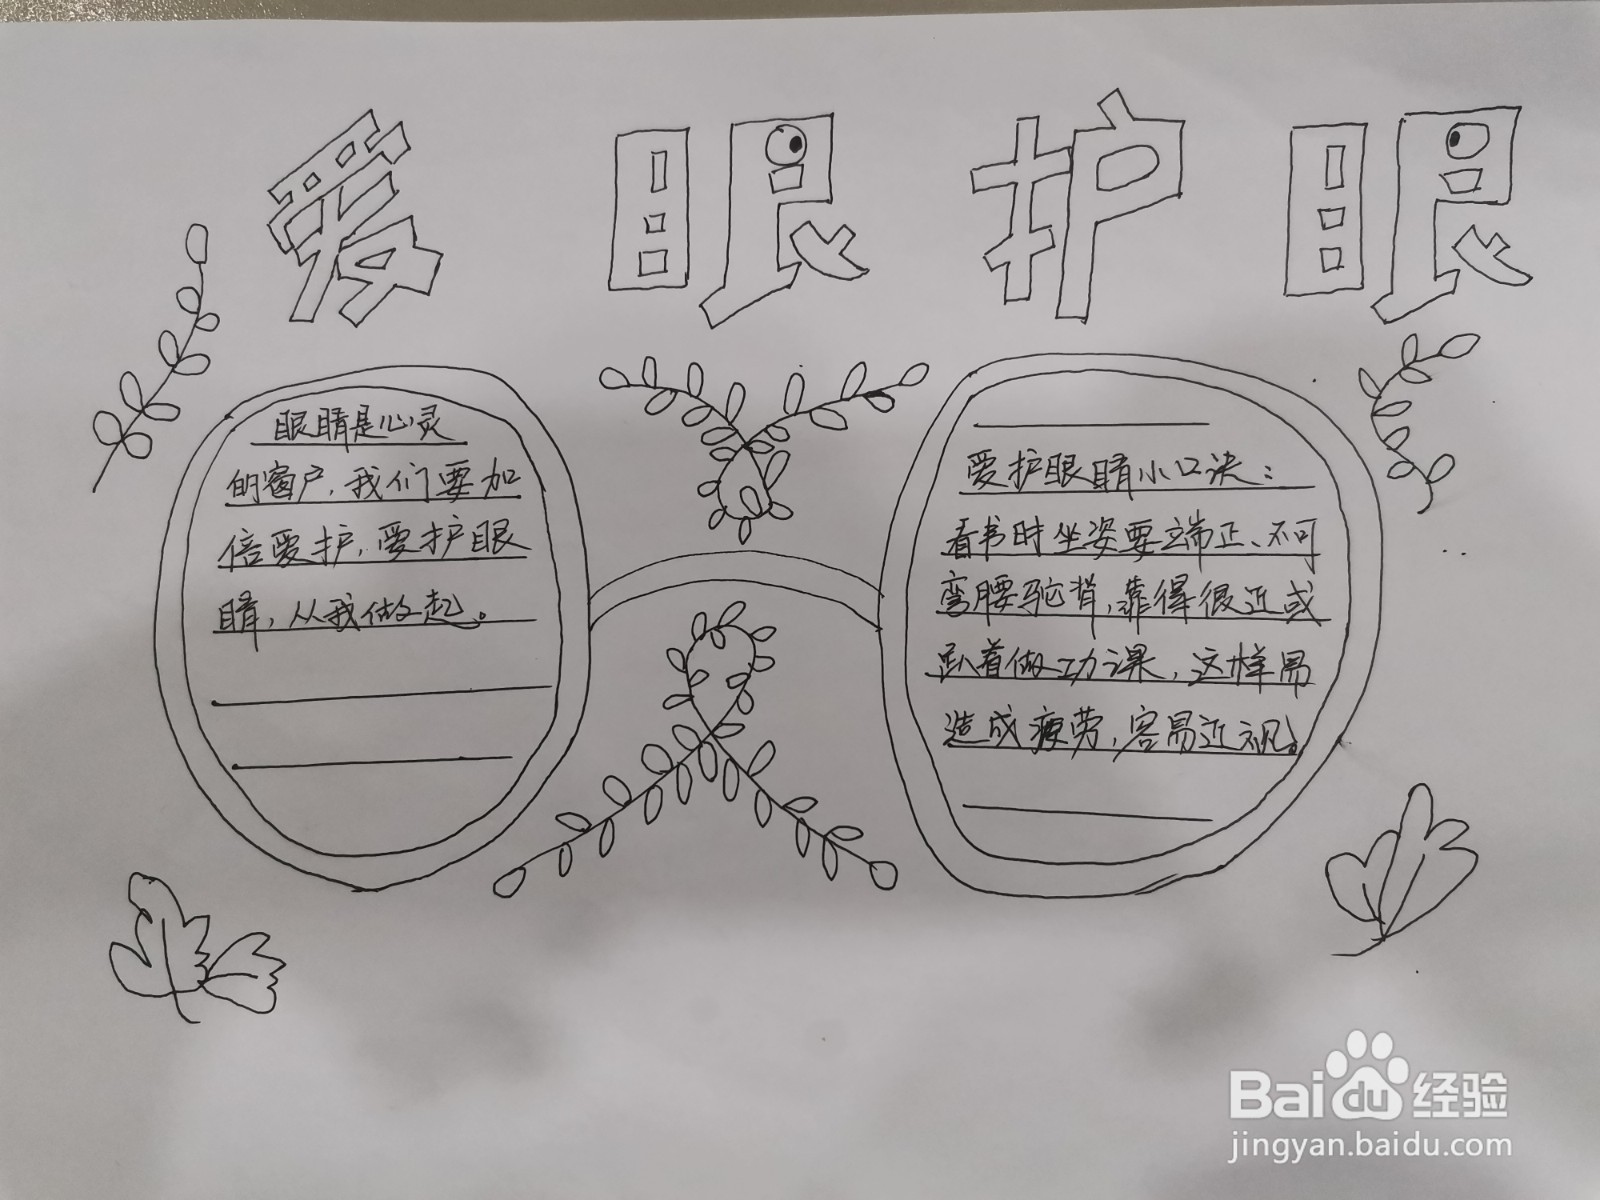 爱眼护眼
眼睛是心灵
的窗户,我们要加
倍爱护,爱护眼
睛,从我做起。
爱护眼睛小口诀:
看书时坐姿要端正、不可
弯腰驼背,靠得很近或
趴着做功课,这样易
造成疲劳,容易近视。
Baidu经验
jingyan.baidu.com